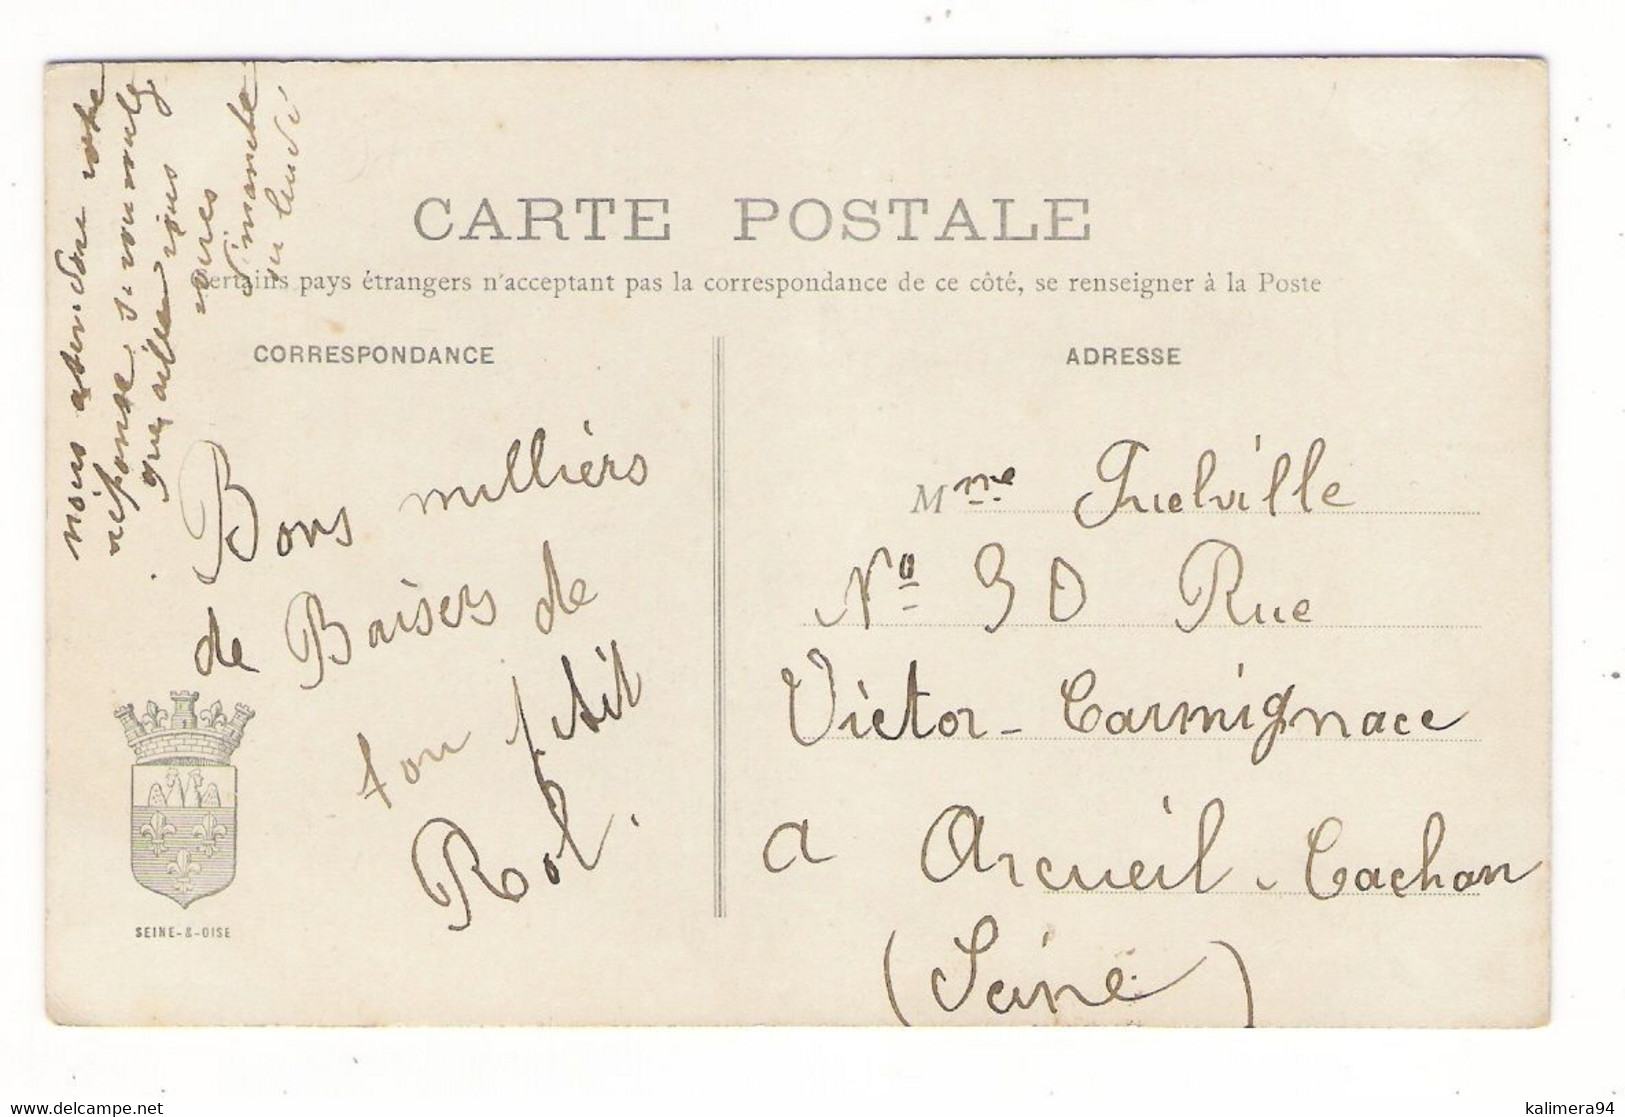 CARTE POSTALE
Certains pays étrangers n'acceptant pas la correspondance de ce côté, se renseigner à la Poste
CORRESPONDANCE
nous attendons votre
réponse si vous voulez
que aille vous
voires
dimanche
ou lundi
Bons milliers
de Baisers de
ton petit
Rol.
SEINE-&-OISE
ADRESSE
Mme
No 30 Rue
Victor-Carmignace
a Arcueil-Cachan
(Seine)
delcampe.net
kalimera94